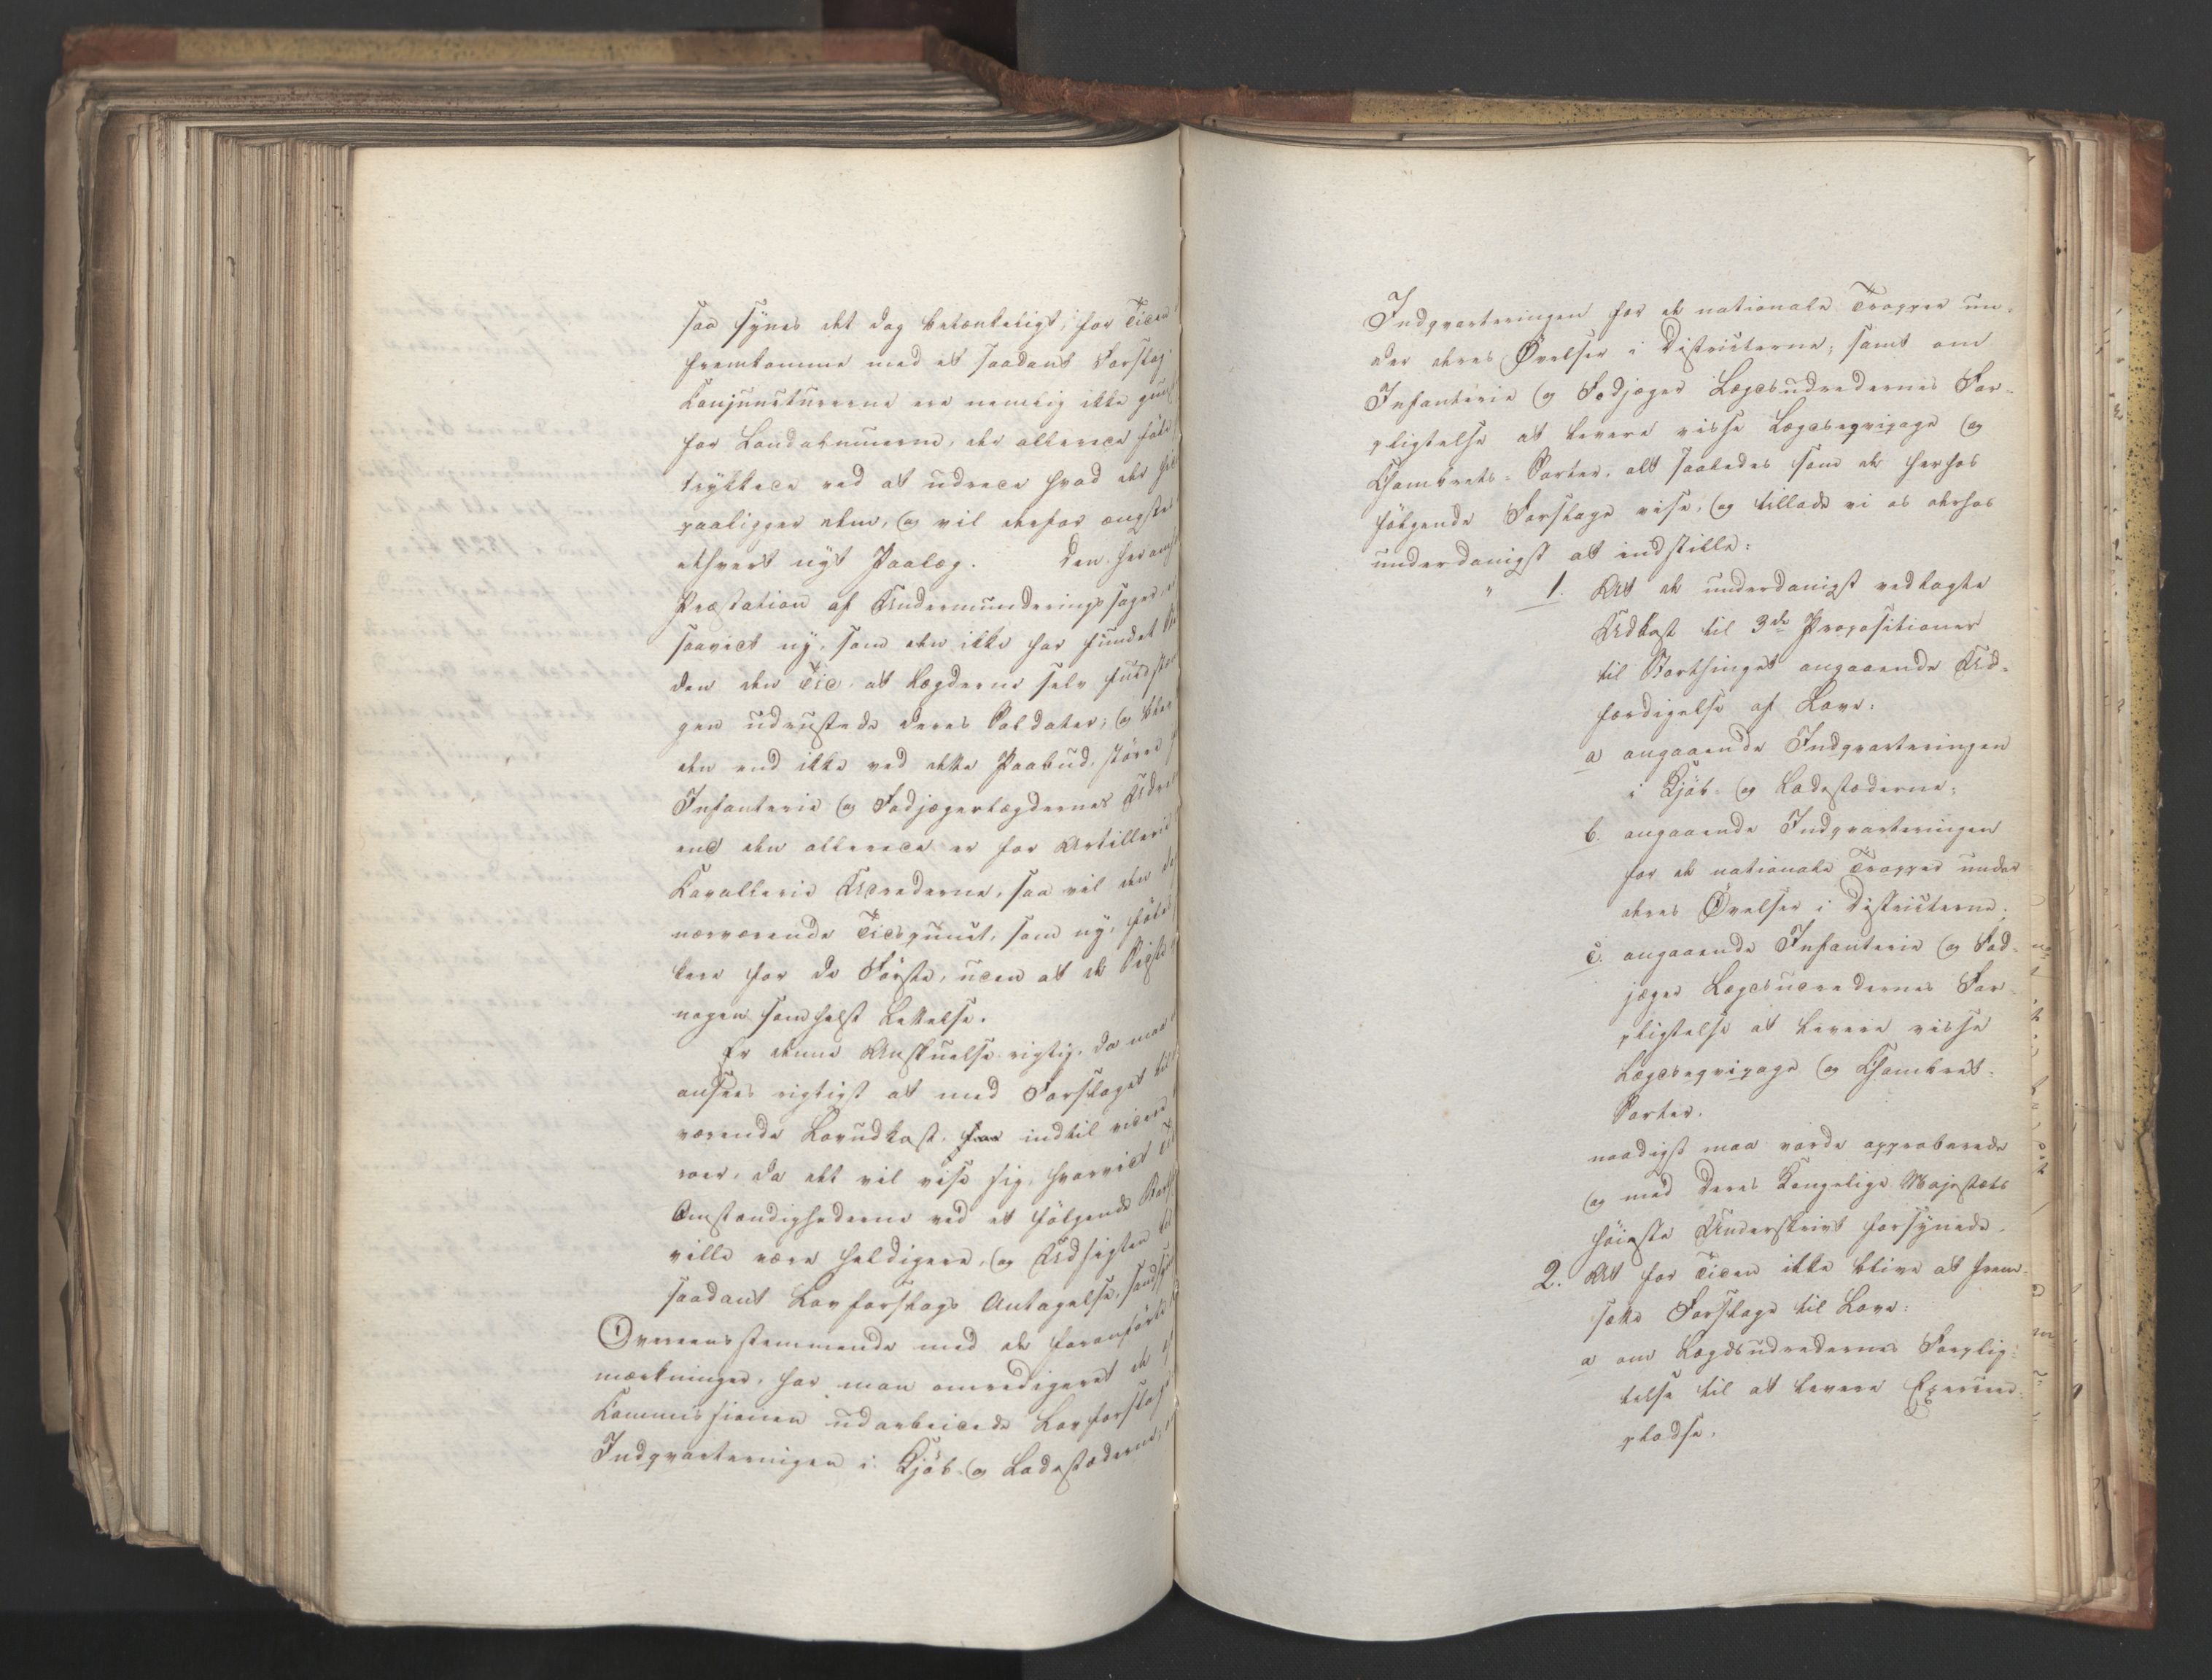 saa synes det dog betænkeligt, for Tiden
fremkomme med et saadant Forslag.
Konjuncturerne ere nemlig ikke
for Landalmuerne, der allerede føle
trykkede ved at udrede hvad der
paaligger dem, og vil derfor ængstes
ethvert nyt Paalæg. Den her
Præstation af Undermunderingssager
saavidt ny, som den ikke har fundet
den den Tid, at Lægderne selv
gen udrustede deres Soldater; og
den end ikke ved dette Paabud, større
Infanterie og Fodjægerlægdernes
end den allerede er for Artillerie
Kavallerie Udrederne, saa vil den
nærværende Tidspunct, som ny, føles
bare for de Første, uden at de Sidste
nogen somhelst Lettelse.
Er denne Anskuelse rigtig, da maa
ansees rigtigst at med Forslaget til
værende Lovudkast, indtil videre
roer, da det vil vise sig, hvorvidt
Omstændighederne ved et følgende
ville være heldigere, og Udsigten til
saadant Lovforslags Antagelse,
Overeensstemmende med de foranførte
mærkninger, har man omredigeret de af
Kommissionen udarbeidede Lovforslag
Indqvarteringen i Kjøb- og Ladestæderne,
Indqvarteringen for de nationale Tropper un-
der deres Øvelser i Districterne, samt om
Infanterie og Fodjæger Lægdsudredernes For-
pligtelse at levere visse Lægdseqvipage og
Chambrets-Sorter, alt saaledes som de herhos
følgende Forslage vise, og tillade vi os derhos
underdanigst at indstille:
" 1. At de underdanigst vedlagte
Udkast til 3de Propositioner
til Storthinget angaaende Ud-
færdigelse af Love:
a angaaende Indqvarteringen
i Kjøb- og Ladestæderne;
b. angaaende Indqvarteringen
for de nationale Tropper under
deres Øvelser i Districterne;
c. angaaende Infanterie og Fod-
jæger Lægdsudredernes For-
pligtelse at levere visse
Lægdseqvipage og Chambret-
Sorter,
naadigst maa vorde approberede
og med Deres Kongelige Majestæts
høieste Underskrivt forsynede.
2. At for Tiden ikke blive at frem-
sætte Forslage til Love:
a om Lægdsudredernes Forplig-
telse til at levere Exerceer-
pladse,